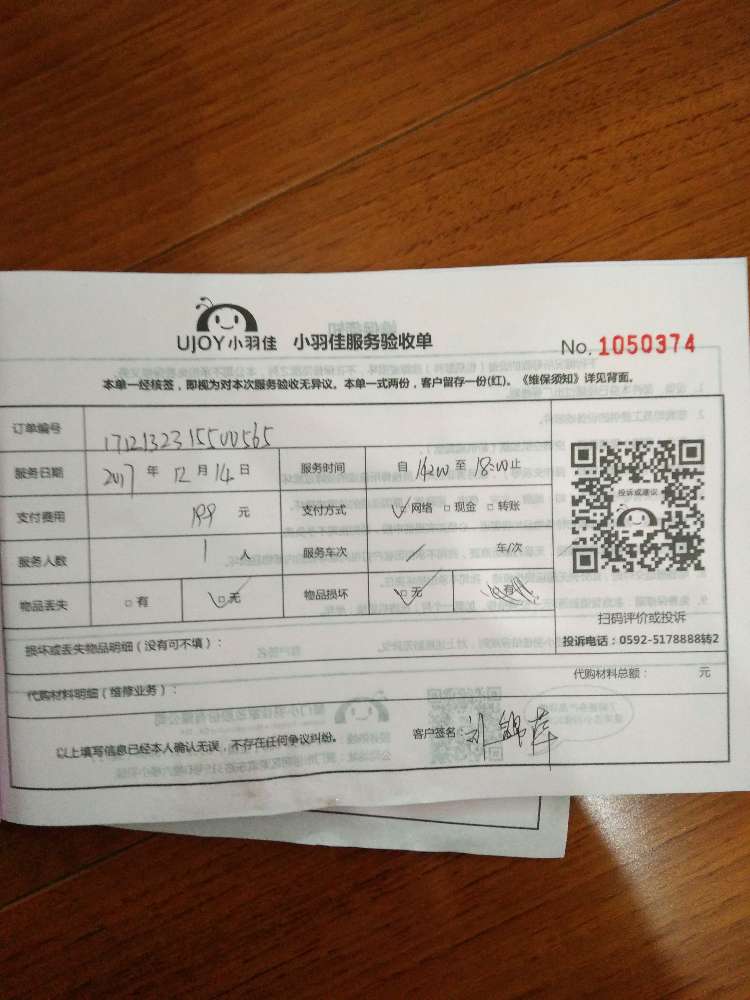 UJOY小羽佳 小羽佳服务验收单 No. 1050374
本单一经核签，即视为对本次服务验收无异议。本单一式两份，客户留存一份(红)。《维保须知》详见背面。
订单编号 1712132315500565
服务日期 2017 年 12 月 14 日 服务时间 自 14:00 至 18:00 止
支付费用 199 元 支付方式 网络 □ 现金 □ 转账
服务人数 1 人 服务车次 / 车/次
物品丢失 □ 有 □ 无 物品损坏 □ 无 □ 有
投诉或建议
扫码评价或投诉
投诉电话：0592-5178888转2
损坏或丢失物品明细（没有可不填）：
代购材料总额： 元
代购材料明细（维修业务）：
以上填写信息已经本人确认无误，不存在任何争议纠纷。 客户签名：